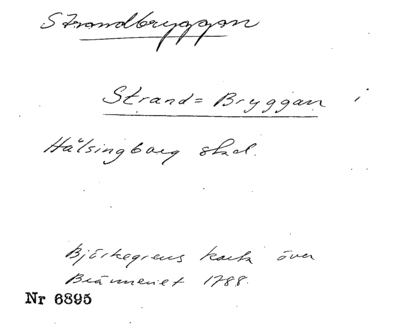 Strandbryggan
Strand= Bryggan i
Hälsingborg stad.
Björkegrens karta över
Bränneriet 1788.
Nr 6895